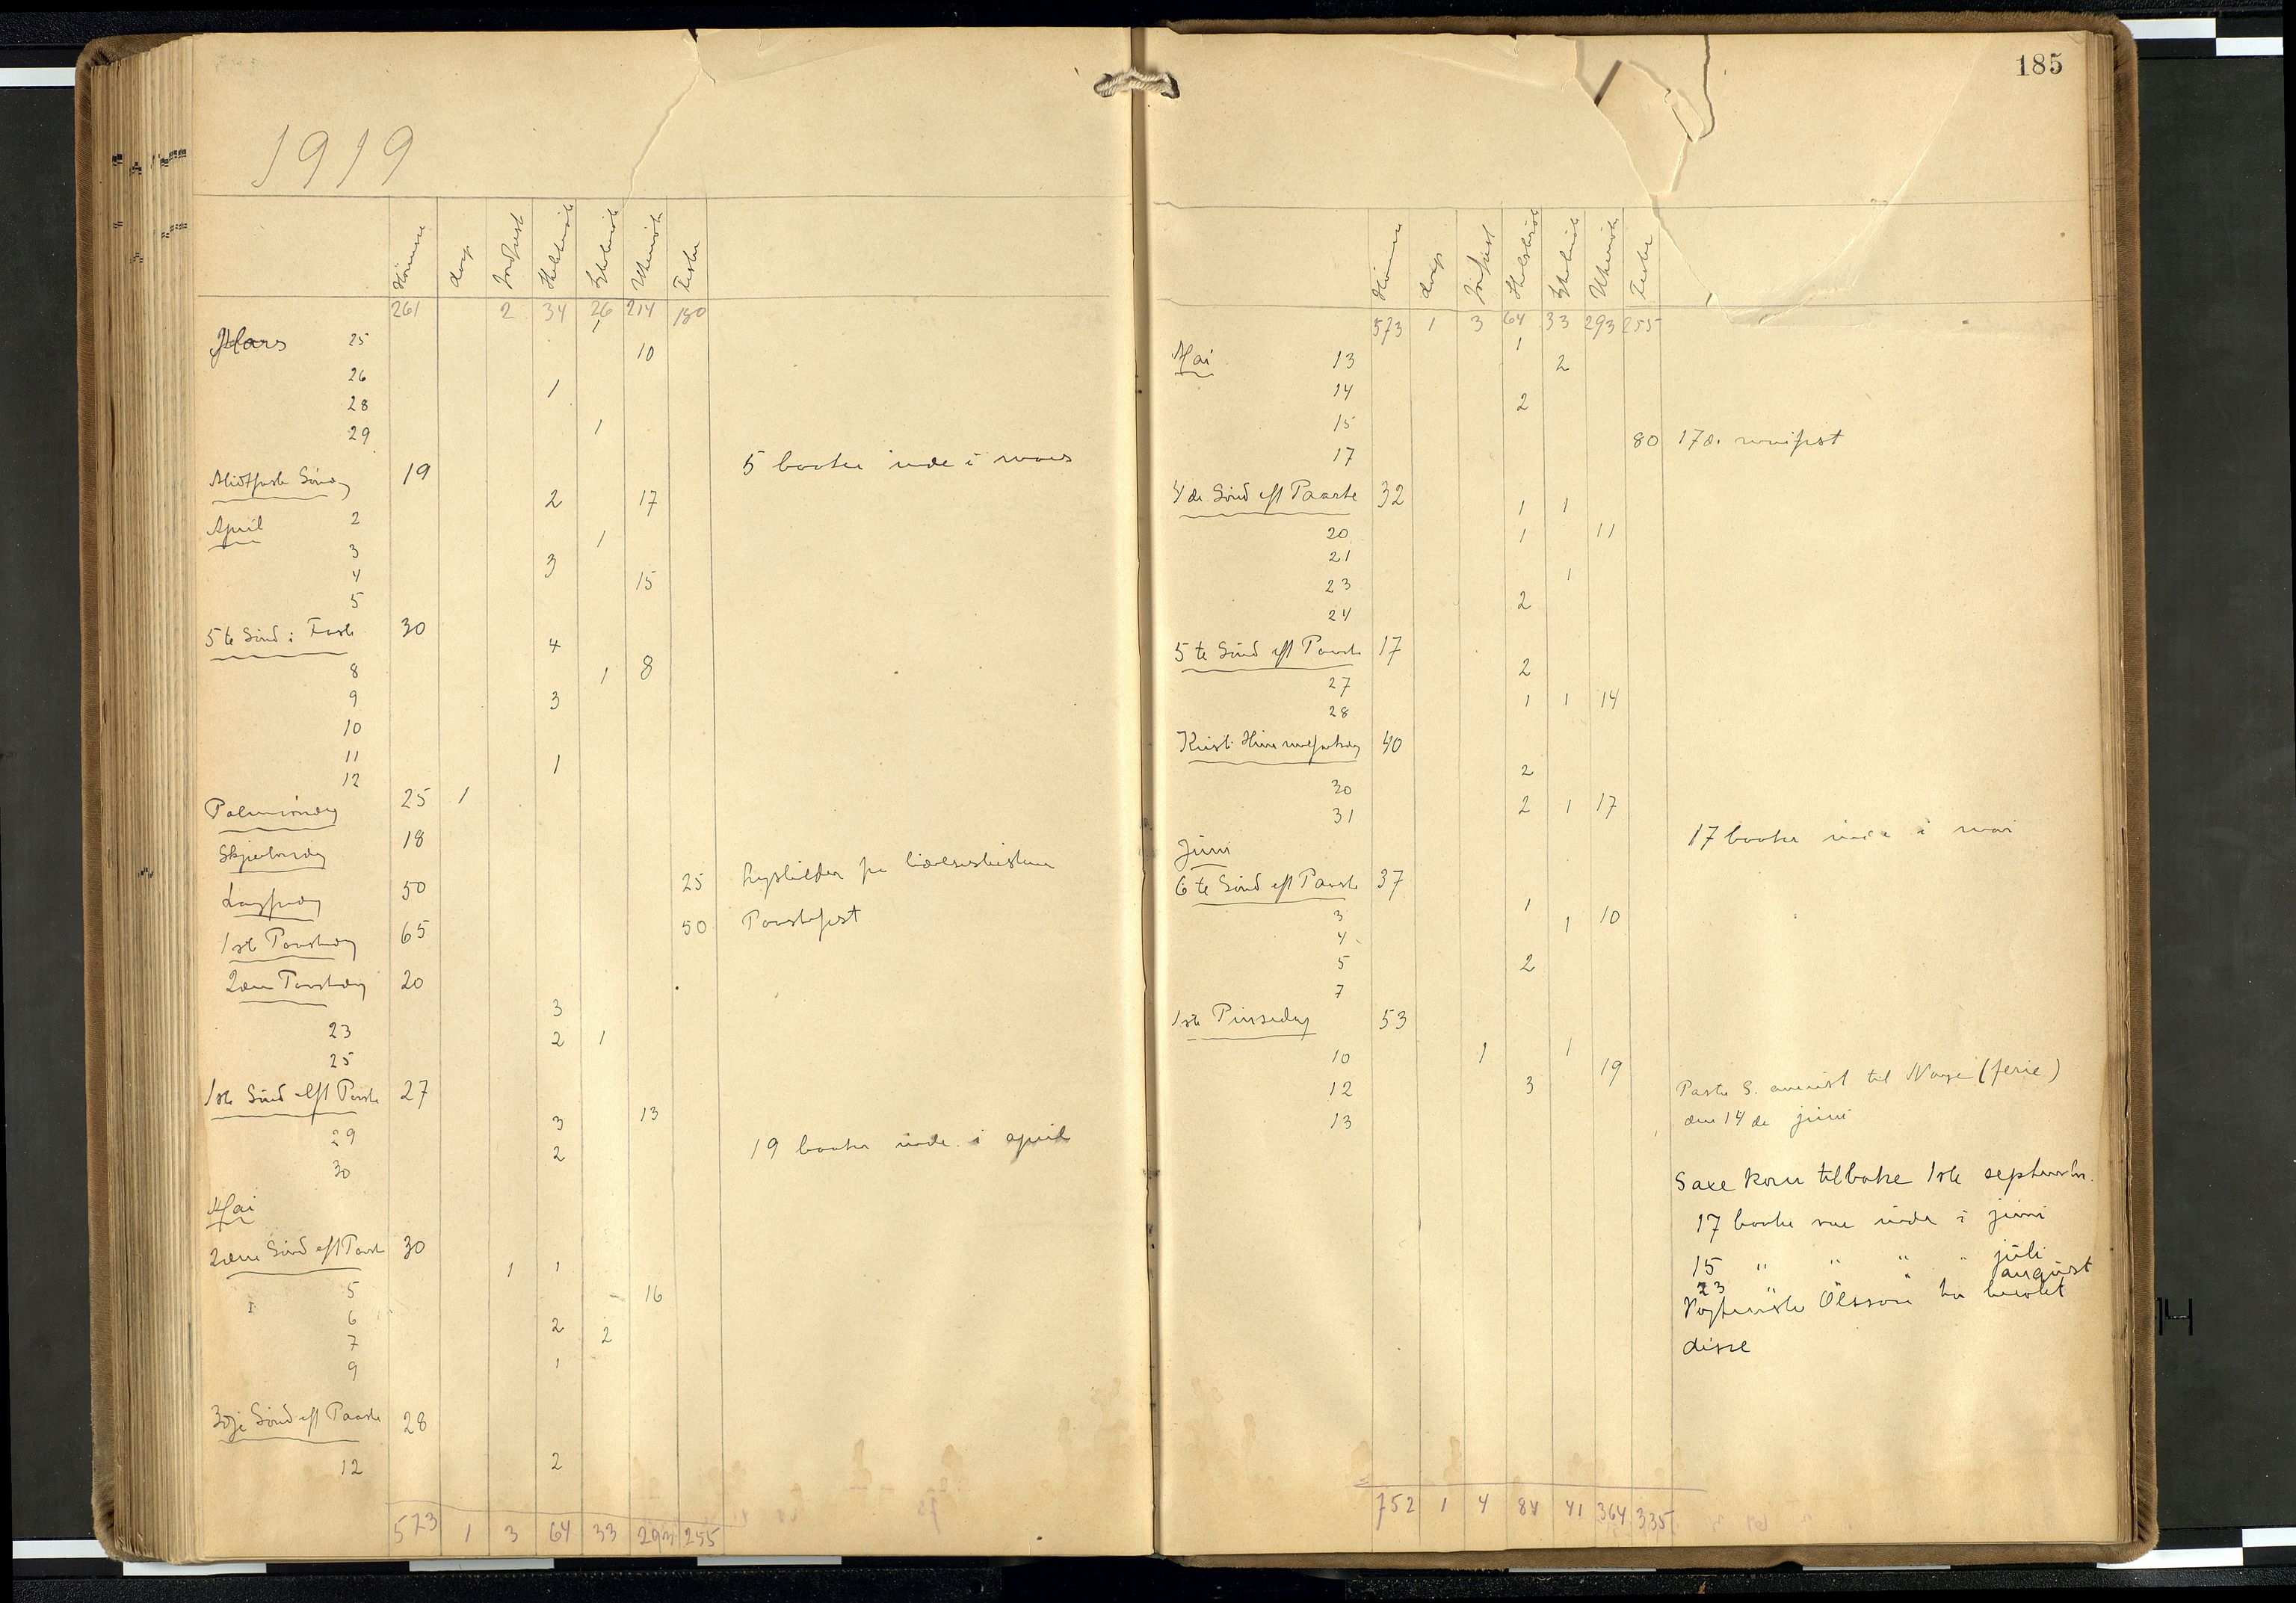 1919
Hørere daap Indført Skibsbesøk Sykebesøk Utkomst Fester
261 2 34 26 214 180
Mars 25 1 10
26 1
28
29 1
5 baater inde i mars
Midtfaste Sønd 19
2 17
April 2
1
3 3
4 15
5
5te Sønd i Faste 30
4
8 1 8
9 3
10
11 1
12
Palmesøndag 25 1
Skjærtorsdag 18
Langfredag 50 25 Lysbilder fra lidelseshistorien
1ste Paaskedag 65 50 Paaskefest
2den Paaskedag 20
3
23 2 1
25
1ste Sønd eft Paaske 27
3 13
29 2
30
19 baater inde i april
Mai
2den Sønd eft Paaske 30
1 1
5 16
6 2 2
7
9 1
3dje Sønd eft Paaske 28
12 2
573 1 3 64 33 293 255
185
573 1 3 64 33 293 255
Mai 13 1 2
14 2
15
17 80 17de maifest
4de Sønd eft Paaske 32
1 1
20 1 11
21
23 1
24 2
5te Sønd eft Paaske 17
2
27
28 1 1 14
Kristi Himmelfartsdag 40
2
30
31 2 1 17
17 baater inde i mai
Juni
6te Sønd eft Paaske 37
1
3 1 10
4
5 2
7
1ste Pinsedag 53
10 1 1
19
12 3 Pastor S. avreist til Norge (ferie)
13 den 14de juni
Saxe kom tilbake 1ste september.
17 baater var inde i juni
15 " " " juli
23 " " " august
Olsson har besøkt
disse
752 1 4 84 41 364 335